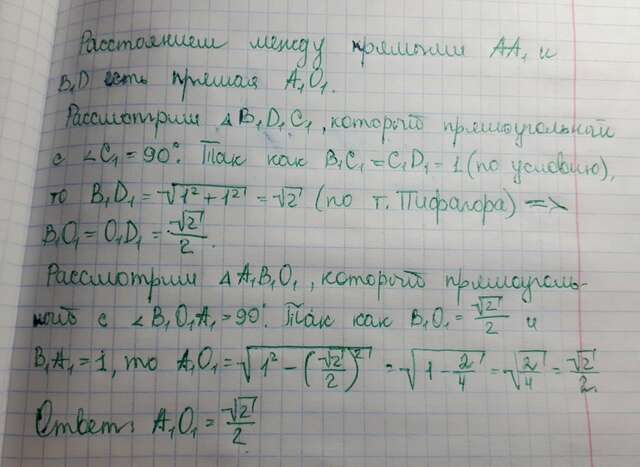 Расстоянием между прямыми AA₁ и
B₁D есть прямая A₁O₁.
Рассмотрим △B₁D₁C₁, который прямоугольный
с ∠C₁=90°. Так как B₁C₁=C₁D₁=1 (по условию),
то B₁D₁=√(1²+1²)=√2 (по т. Пифагора) =>
B₁O₁=O₁D₁=√2/2.
Рассмотрим △A₁B₁O₁, который прямоуголь-
ный с ∠B₁O₁A₁=90°. Так как B₁O₁=√2/2 и
B₁A₁=1, то A₁O₁=√(1²-(√2/2)²)=√(1-2/4)=√(2/4)=√2/2.
Ответ: A₁O₁=√2/2